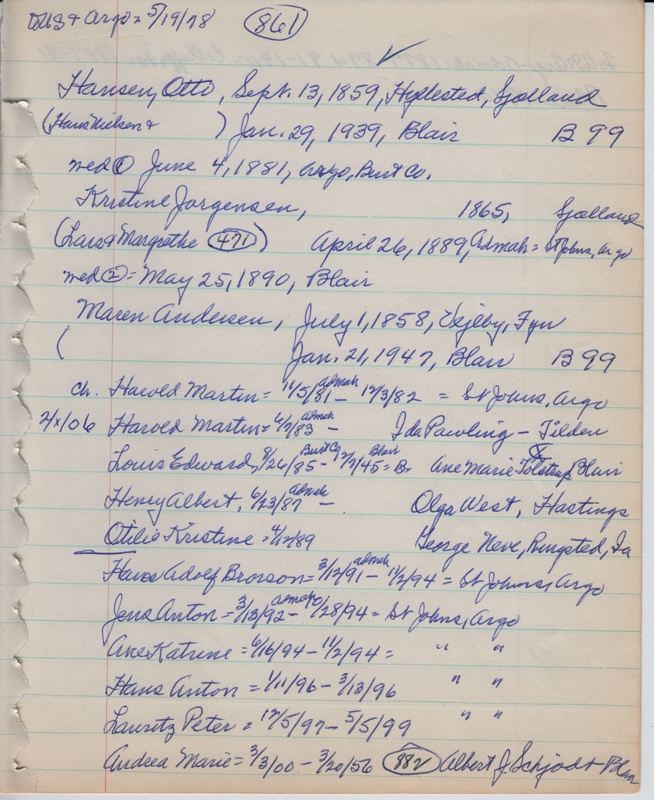 DUS & Argo = 5/19/78 861
Hansen, Otto, Sept. 13, 1859, Heplested, Sjælland
(Hans Nielsen & ) Jan. 29, 1939, Blair B 99
med ① June 4, 1881, Argo, Burt Co.
Kristine Jorgensen, 1865, Sjælland
(Lars & Margrethe 471) April 26, 1889, Admah = St Johns, Argo
med ② = May 25, 1890, Blair
Maren Andersen, July 1, 1858, Vejlby, Fyn
( Jan. 21, 1947, Blair B 99
ch. Harold Martin = 11/5/81 Admah - 12/3/82 = St Johns, Argo
2/x/06 Harold Martin = 6/2/83 Admah - Ida Pawling - Tilden
Louis Edward, 8/26/85 Burt Co - 12/2/45 Blair = B. Ane Marie Tolstrup, Blair
Henry Albert, 6/23/87 Admah - Olga West, Hastings
Otilie Kristine = 4/12/89 George Neve, Ringsted, Ia
Hans Adolf Brorson = 3/12/91 Admah - 11/2/94 = St Johns, Argo
Jens Anton = 3/13/92 Admah - 10/28/94 = St Johns, Argo
Ane Katrine = 6/16/94 - 11/2/94 = " "
Hans Anton = 1/11/96 - 3/13/96 " "
Lauritz Peter = 12/5/97 - 5/5/99 " "
Andrea Marie = 3/3/00 - 3/20/56 882 Albert J. Schjodt Blair